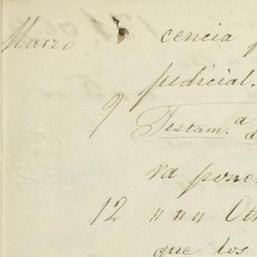 Marzo cencia
judicial.
9 Testam.a
ra poner
12 " " " " Otr
que los